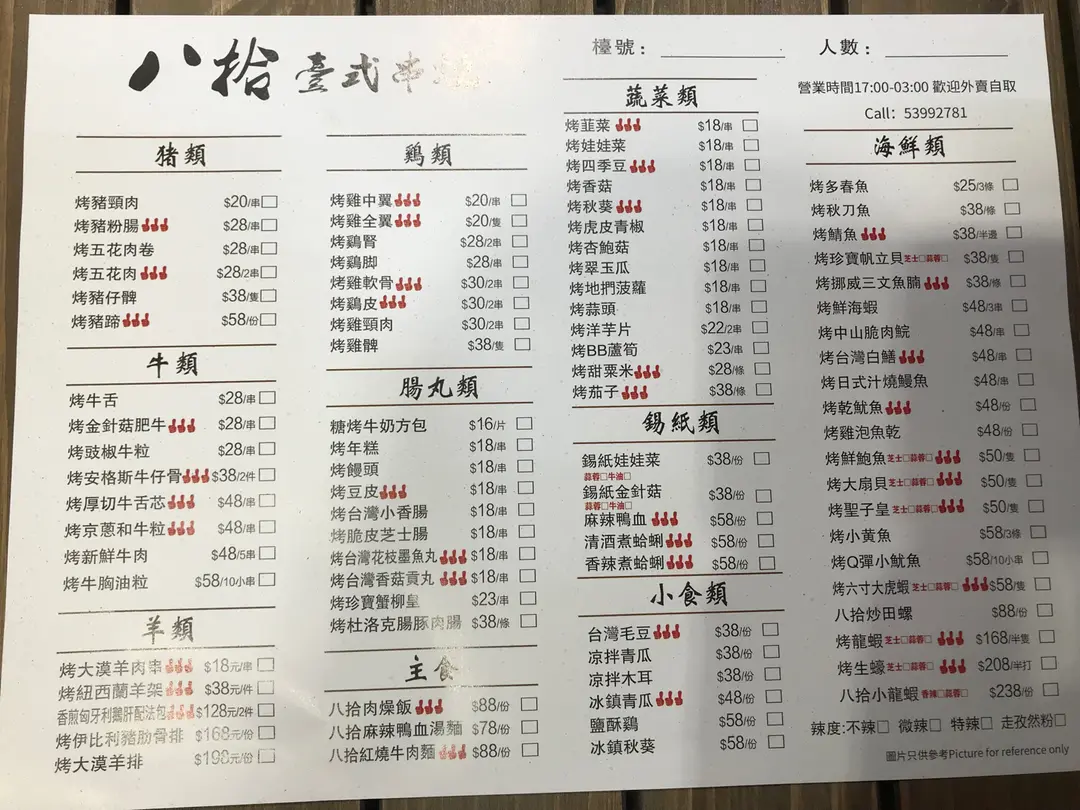 八拾 臺式串燒
檯號：
人數：
營業時間17:00-03:00 歡迎外賣自取
Call: 53992781
猪類
烤豬頸肉 $20/串
烤豬粉腸 $28/串
烤五花肉卷 $28/串
烤五花肉 $28/2串
烤豬仔髀 $38/隻
烤豬蹄 $58/份
牛類
烤牛舌 $28/串
烤金針菇肥牛 $28/串
烤豉椒牛粒 $28/串
烤安格斯牛仔骨 $38/2件
烤厚切牛舌芯 $48/串
烤京蔥和牛粒 $48/串
烤新鮮牛肉 $48/5串
烤牛胸油粒 $58/10小串
羊類
烤大漠羊肉串 $18元/串
烤紐西蘭羊架 $38元/件
香煎匈牙利鵝肝配法包 $128元/2件
烤伊比利豬肋骨排 $168元/份
烤大漠羊排 $198元/份
鷄類
烤雞中翼 $20/串
烤雞全翼 $20/隻
烤鷄腎 $28/2串
烤鷄脚 $28/串
烤雞軟骨 $30/2串
烤鷄皮 $30/2串
烤雞頸肉 $30/2串
烤雞髀 $38/隻
腸丸類
糖烤牛奶方包 $16/片
烤年糕 $18/串
烤饅頭 $18/串
烤豆皮 $18/串
烤台灣小香腸 $18/串
烤脆皮芝士腸 $18/串
烤台灣花枝墨魚丸 $18/串
烤台灣香菇貢丸 $18/串
烤珍寶蟹柳皇 $23/串
烤杜洛克腸豚肉腸 $38/條
主食
八拾肉燥飯 $88/份
八拾麻辣鴨血湯麵 $78/份
八拾紅燒牛肉麵 $88/份
蔬菜類
烤韮菜 $18/串
烤娃娃菜 $18/串
烤四季豆 $18/串
烤香菇 $18/串
烤秋葵 $18/串
烤虎皮青椒 $18/串
烤杏鮑菇 $18/串
烤翠玉瓜 $18/串
烤地捫菠蘿 $18/串
烤蒜頭 $18/串
烤洋芋片 $22/2串
烤BB蘆筍 $23/串
烤甜粟米 $28/條
烤茄子 $38/條
錫紙類
錫紙娃娃菜 $38/份
蒜蓉□牛油□
錫紙金針菇 $38/份
蒜蓉□牛油□
麻辣鴨血 $58/份
清酒煮蛤蜊 $58/份
香辣煮蛤蜊 $58/份
小食類
台灣毛豆 $38/份
凉拌青瓜 $38/份
凉拌木耳 $38/份
冰鎮青瓜 $48/份
鹽酥鷄 $58/份
冰鎮秋葵 $58/份
海鮮類
烤多春魚 $25/3條
烤秋刀魚 $38/條
烤鯖魚 $38/半邊
烤珍寶帆立貝 芝士□蒜蓉□ $38/隻
烤挪威三文魚腩 $38/條
烤鮮海蝦 $48/3串
烤中山脆肉鯇 $48/串
烤台灣白鱔 $48/串
烤日式汁燒鰻魚 $48/串
烤乾魷魚 $48/份
烤雞泡魚乾 $48/份
烤鮮鮑魚 芝士□蒜蓉□ $50/隻
烤大扇貝 芝士□蒜蓉□ $50/隻
烤聖子皇 芝士□蒜蓉□ $50/隻
烤小黃魚 $58/3條
烤Q彈小魷魚 $58/10小串
烤六寸大虎蝦 芝士□蒜蓉□ $58/隻
八拾炒田螺 $88/份
烤龍蝦 芝士□蒜蓉□ $168/半隻
烤生蠔 芝士□蒜蓉□ $208/半打
八拾小龍蝦 香辣□蒜蓉□ $238/份
辣度:不辣□ 微辣□ 特辣□ 走孜然粉□
圖片只供參考Picture for reference only